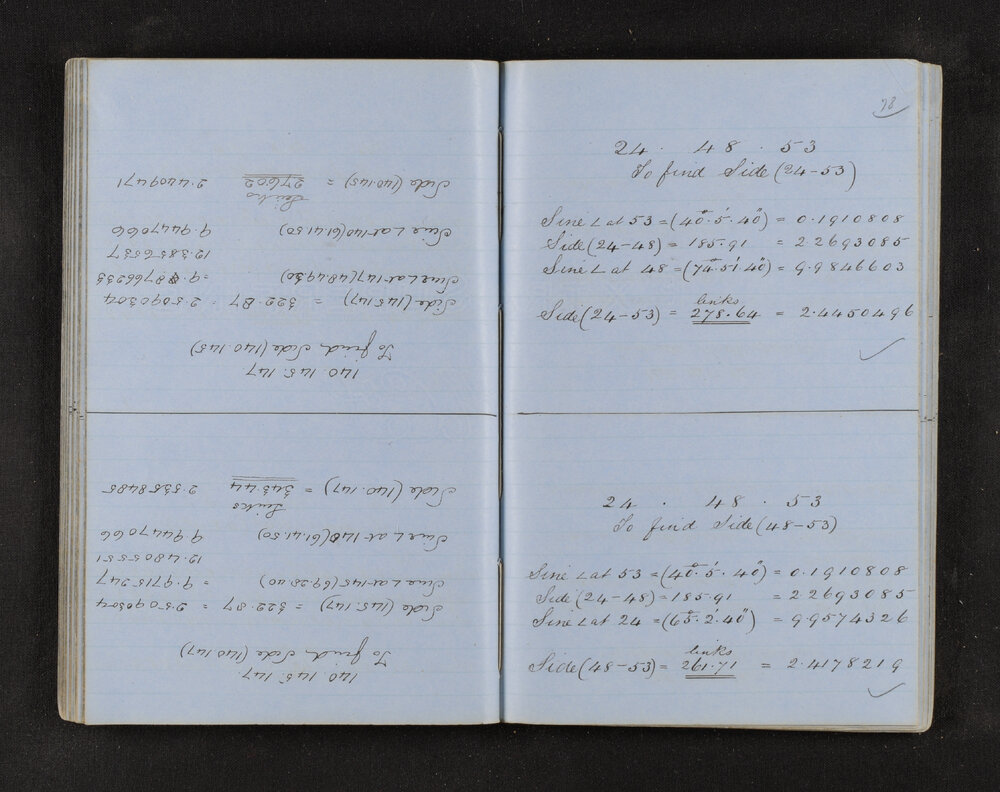 140. 145. 147.
To find Side (140.147)
Side (145.147) = 322.87 = 2.5090304
Sine ∠ at 145 (69.28.40) = 9.9715247
12.4805551
Sine ∠ at 140 (61.41.50) 9.9447066
Links
Side (140.147) = 343.44 2.5358485
140. 145. 147
To find Side (140.145)
Side (145.147) = 322.87 = 2.5090304
Sine ∠ at 147 (48.49.30) = 9.8766233
12.3856537
Sine ∠ at 140 (61.41.50) 9.9447066
Links
Side (140.145) = 276.02 2.4409471
78
24 . 48 . 53
To find Side (24-53)
Sine ∠ at 53 = (40°. 5'. 40") = 0.1910808
Side (24-48) = 185.91 = 2.2693085
Sine ∠ at 48 = (74°. 51'. 40") = 9.9846603
links
Side (24-53) = 278.64 = 2.4450496
24 . 48 . 53
To find Side (48-53)
Sine ∠ at 53 = (40°. 5'. 40") = 0.1910808
Side (24-48) = 185.91 = 2.2693085
Sine ∠ at 24 = (65°. 2'. 40") = 9.9574326
links
Side (48-53) = 261.71 = 2.4178219